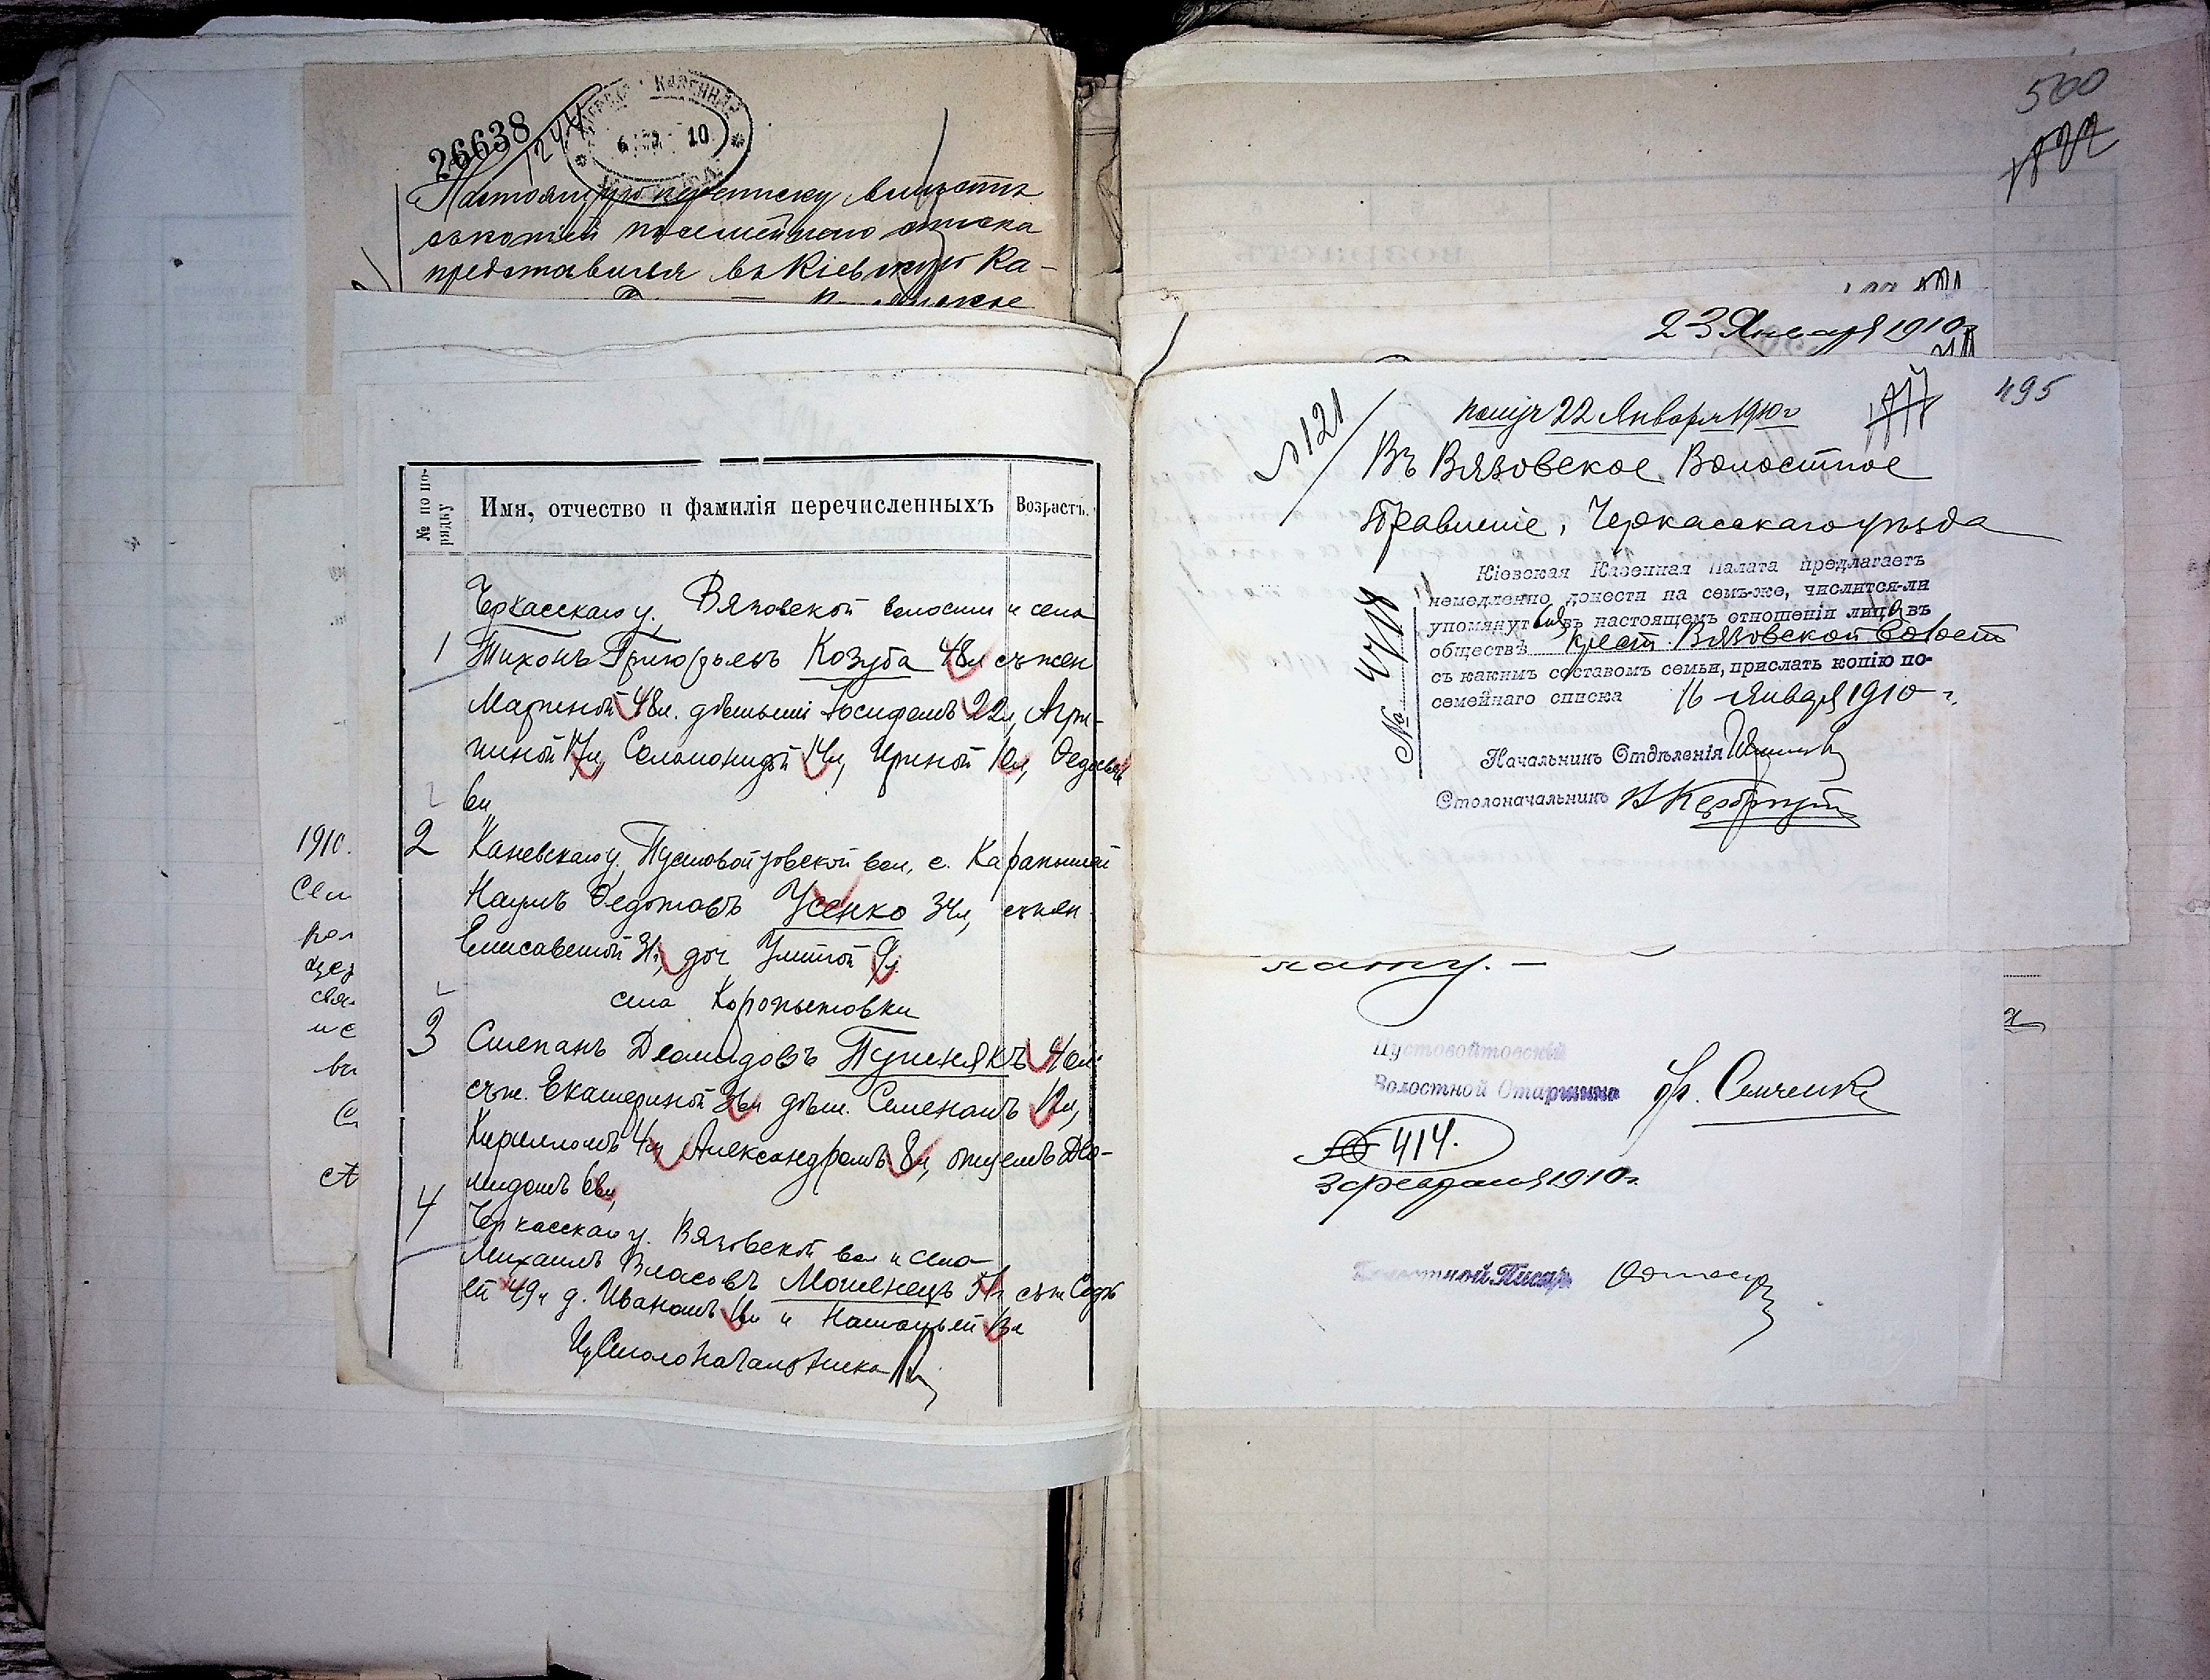 26638
1244
КАЗЕННАЯ
10
Настоящую переписку вмѣстѣ
съ копіей посемейнаго списка
представила въ Кіевскую Ка-
№ по по-
рядку
Имя, отчество и фамилія перечисленныхъ
Возрастъ.
Черкасскаго у. Вязовской волости и села
1 Тихонъ Григорьевъ Козуба 48л съ жен
Мариной 48л. дѣтьми Іосифомъ 22л, Агри-
пиной 17л, Соломонидой 14л, Ириной 10л, Федосьей
6л
2 Каневскаго у. Пустовойтовской вол, с. Карапышей
Наумъ Федотовъ Усенко 34л, съ жен
Елисаветой 31л, доч Улитой 9л.
села Коропытовки
3 Степанъ Деомидовъ Пушнякъ 40л
съ ж. Екатериной 36л дѣт. Семеномъ 12л,
Кирилломъ 4л, Александромъ 8л, отцемъ Део-
мидомъ
4 Черкасскаго у. Вязовской вол и села
Михаилъ Власовъ Мошенецъ 51л съ ж Соф
ей 49л д. Иваномъ 16л и Натальей 13л
Столоначальника
1910.
500
23 Января 1910г
495
№ 121
получ 22 Января 1910г
Въ Вязовское Волостное
Правленіе, Черкасскаго уѣзда
Кіевская Казенная Палата предлагаетъ
немедленно донести на семъ-же, числится-ли
упомянутыя въ настоящемъ отношеніи лица въ
обществѣ крест. Вязовской Волост
съ какимъ составомъ семьи, прислать копію по-
семейнаго списка 16 января 1910 г.
№ 4718
Начальникъ Отдѣленія
Столоначальникъ
лату. —
Пустовойтовскій
Волостной Старшина Ф. Сенченко
№ 414.
3 февраля 1910г.
Волостной Писарь